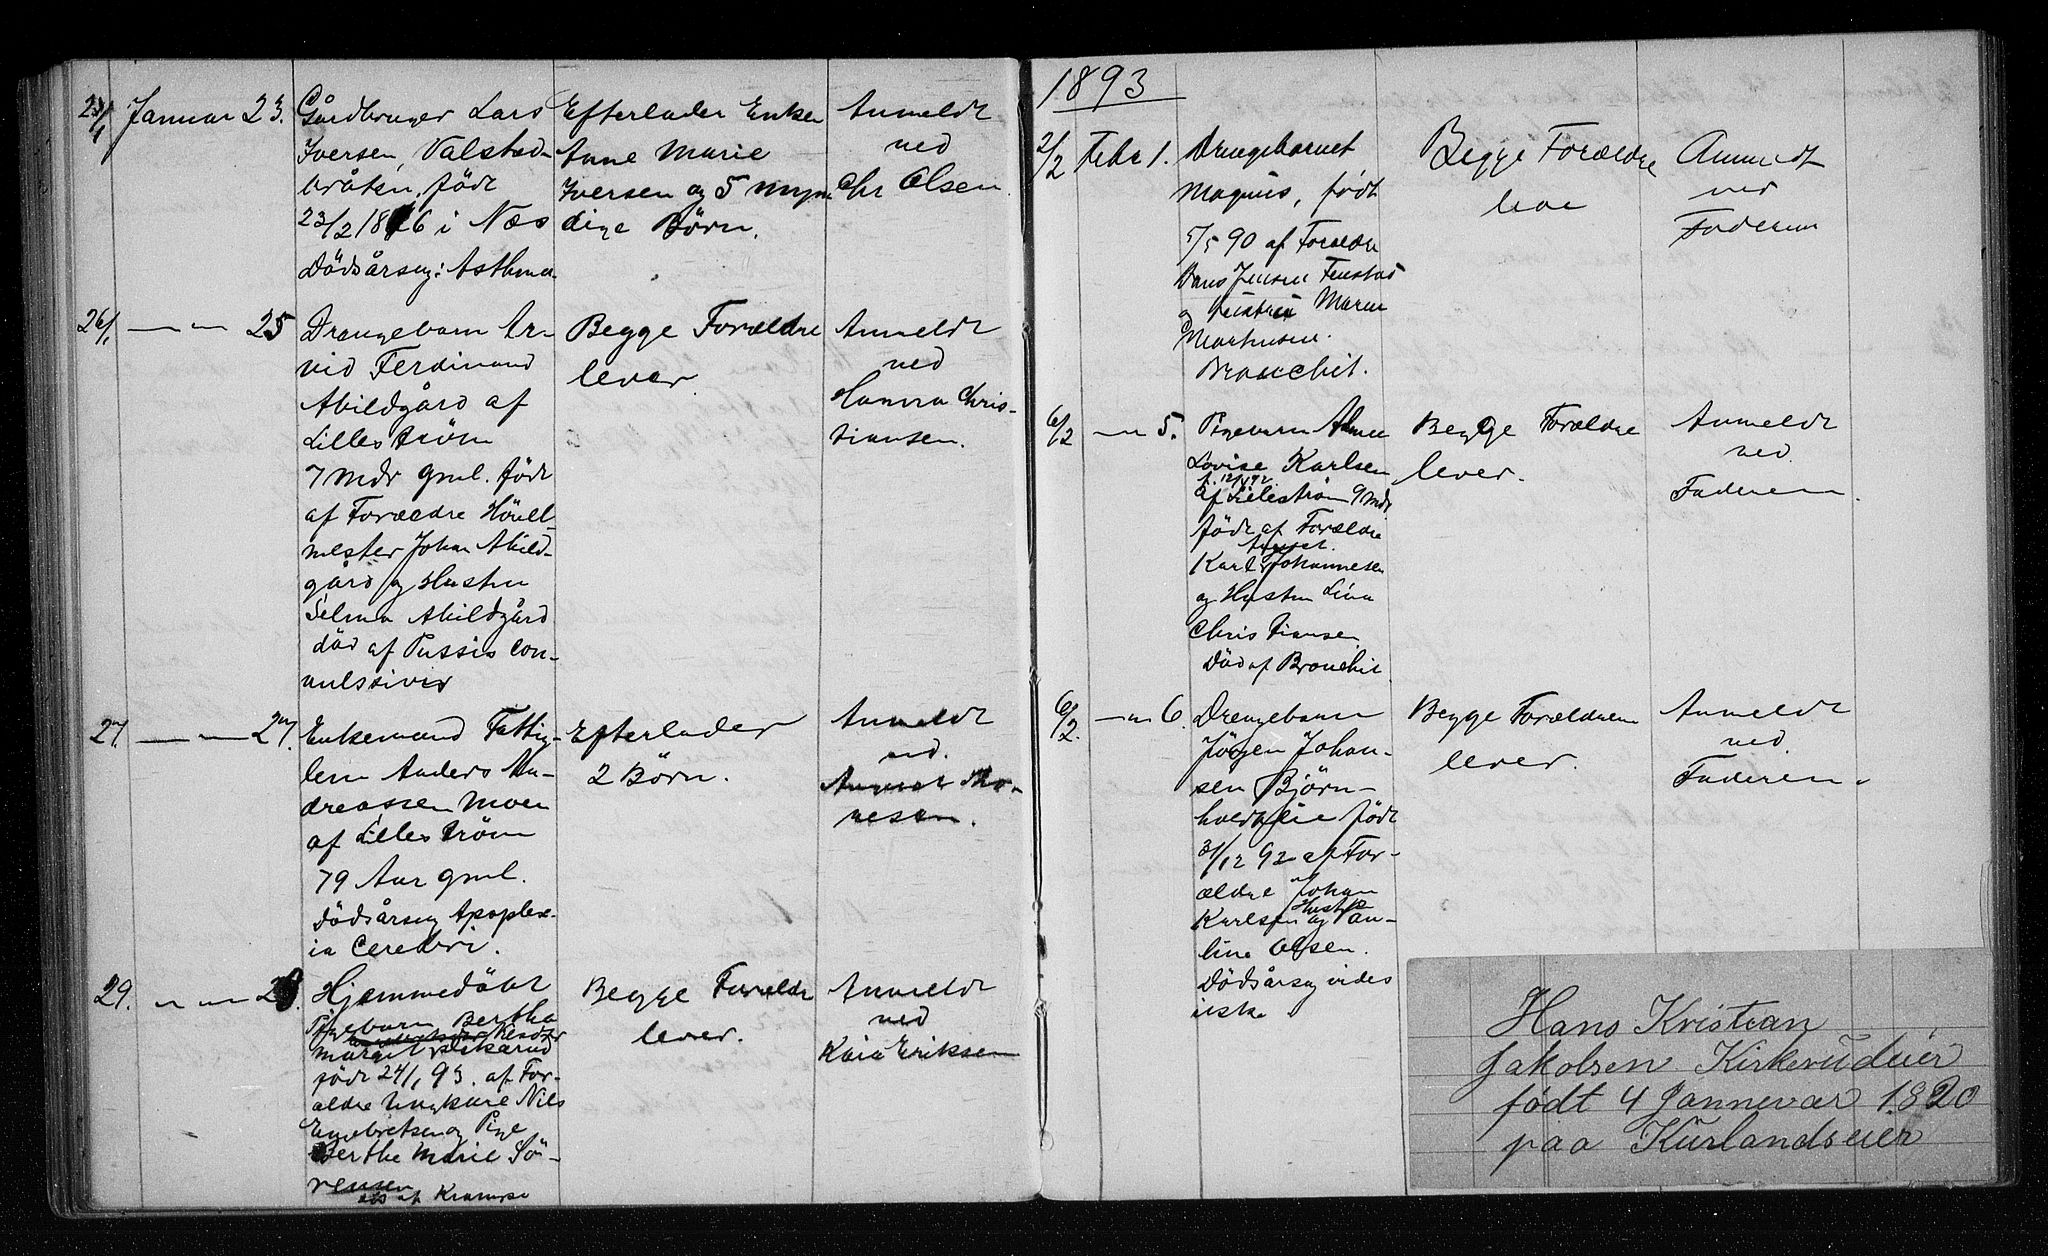 23/1 Januar 23. Gårdbruger Lars
Iversen, Valstad-
bråten, født
23/2 1816 i Næs
Dödsårsag: Asthma.
Efterlader Enken
Anne Marie
Iversen og 5 myn
dige Børn.
Anmeldt
ved
Chr Olsen.
26/1 — " — 25 Drengebarn Ar-
vid Ferdinand
Abildgård af
Lilleström
7 Mdr gml. födt
af Forældre
mester Johan Abild-
gård og Hustru
Selma Abildgård
död af Tussis con-
vulssivis
Begge Forældre
lever.
Anmeldt
ved
Hanna Chris-
tiansen.
27. — " — 27. Enkemand Fattig-
lem Anders An-
dreassen Moen
af Lilleström
79 Aar gml.
Dödsårsag Apoplex-
ia Cerebri.
Efterlader
2 Børn.
Anmeldt
ved.
29. — " — 28. Hjemmedöbt
Pigebarn Bertha
Margit
födt 24/1 93. af For-
ældre Ungkarl Nils
Engebretsen og Pige
Berthe Marie Sö-
rensen
död af Krampe
Begge Forældre
lever.
Anmeldt
ved
Kaia Eriksen
1893
2/2 Febr 1. Drengebarnet
Magnus, født
5/5 90 af Forældre
Hans Jensen
og Hustru Maren
Bronchit.
Begge Forældre
leve
Anmeldt
ved
Faderen
6/2 — " 5. Pigebarn
Lovise Karlsen
af Lilleström 9 Mdr
födt af Forældre
August.
Karl Johannesen
og Hustru Lina
Christiansen
Död af Bronchit.
Begge Forældre
lever.
Anmeldt
ved.
Faderen.
6/2. — " 6. Drengebarn
Jörgen Johan-
sen Björn-
holdteie födt
31/12 92 af For-
ældre Johan
Hustru
Karlsen og Pau-
line Olsen.
Dödsårsag vides
ikke
Begge Forældrene
lever.
Anmeldt
ved.
Faderen.
Hans Kristian
Jakobsen Kirkerudeier
födt 4 Jannevar 1820
paa Kurlandseier